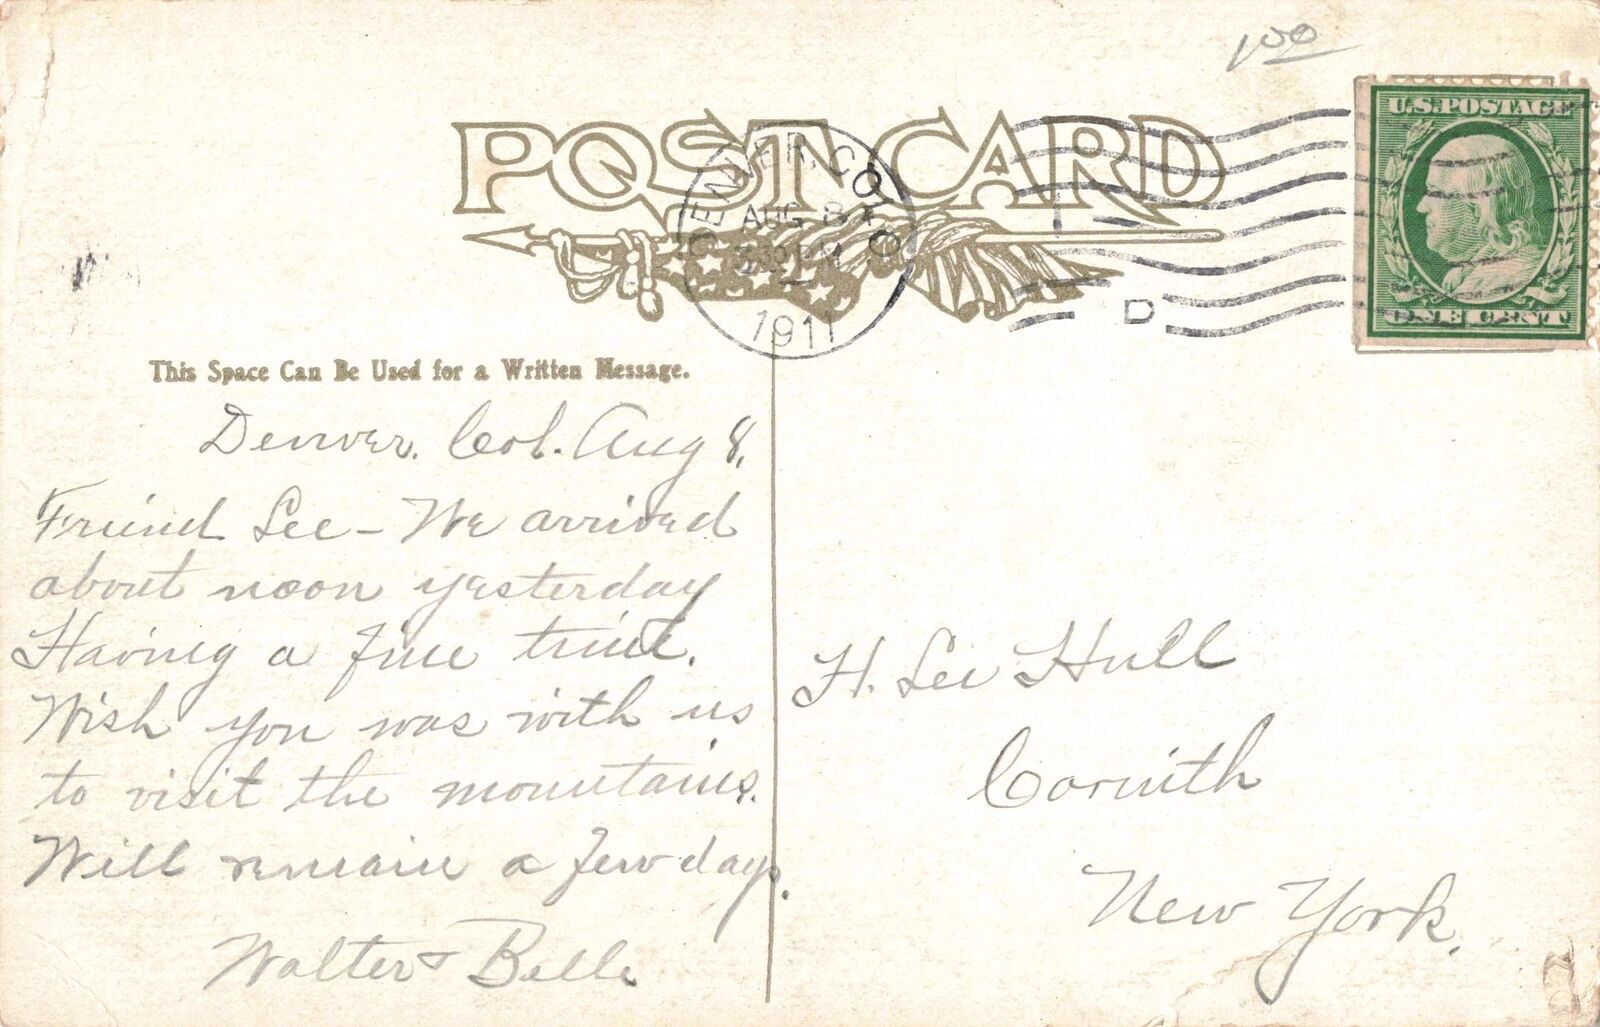 100
POST CARD
U.S. POSTAGE
ONE CENT
DENVER, COLO
AUG 8
PM
1911
D
This Space Can Be Used for a Written Message.
Denver. Col. Aug 8.
Friend Lee - We arrived
about noon yesterday
Having a fine time.
Wish you was with us
to visit the mountains.
Will remain a few days.
Walter & Belle
H. Lee Hull
Corinth
New York.